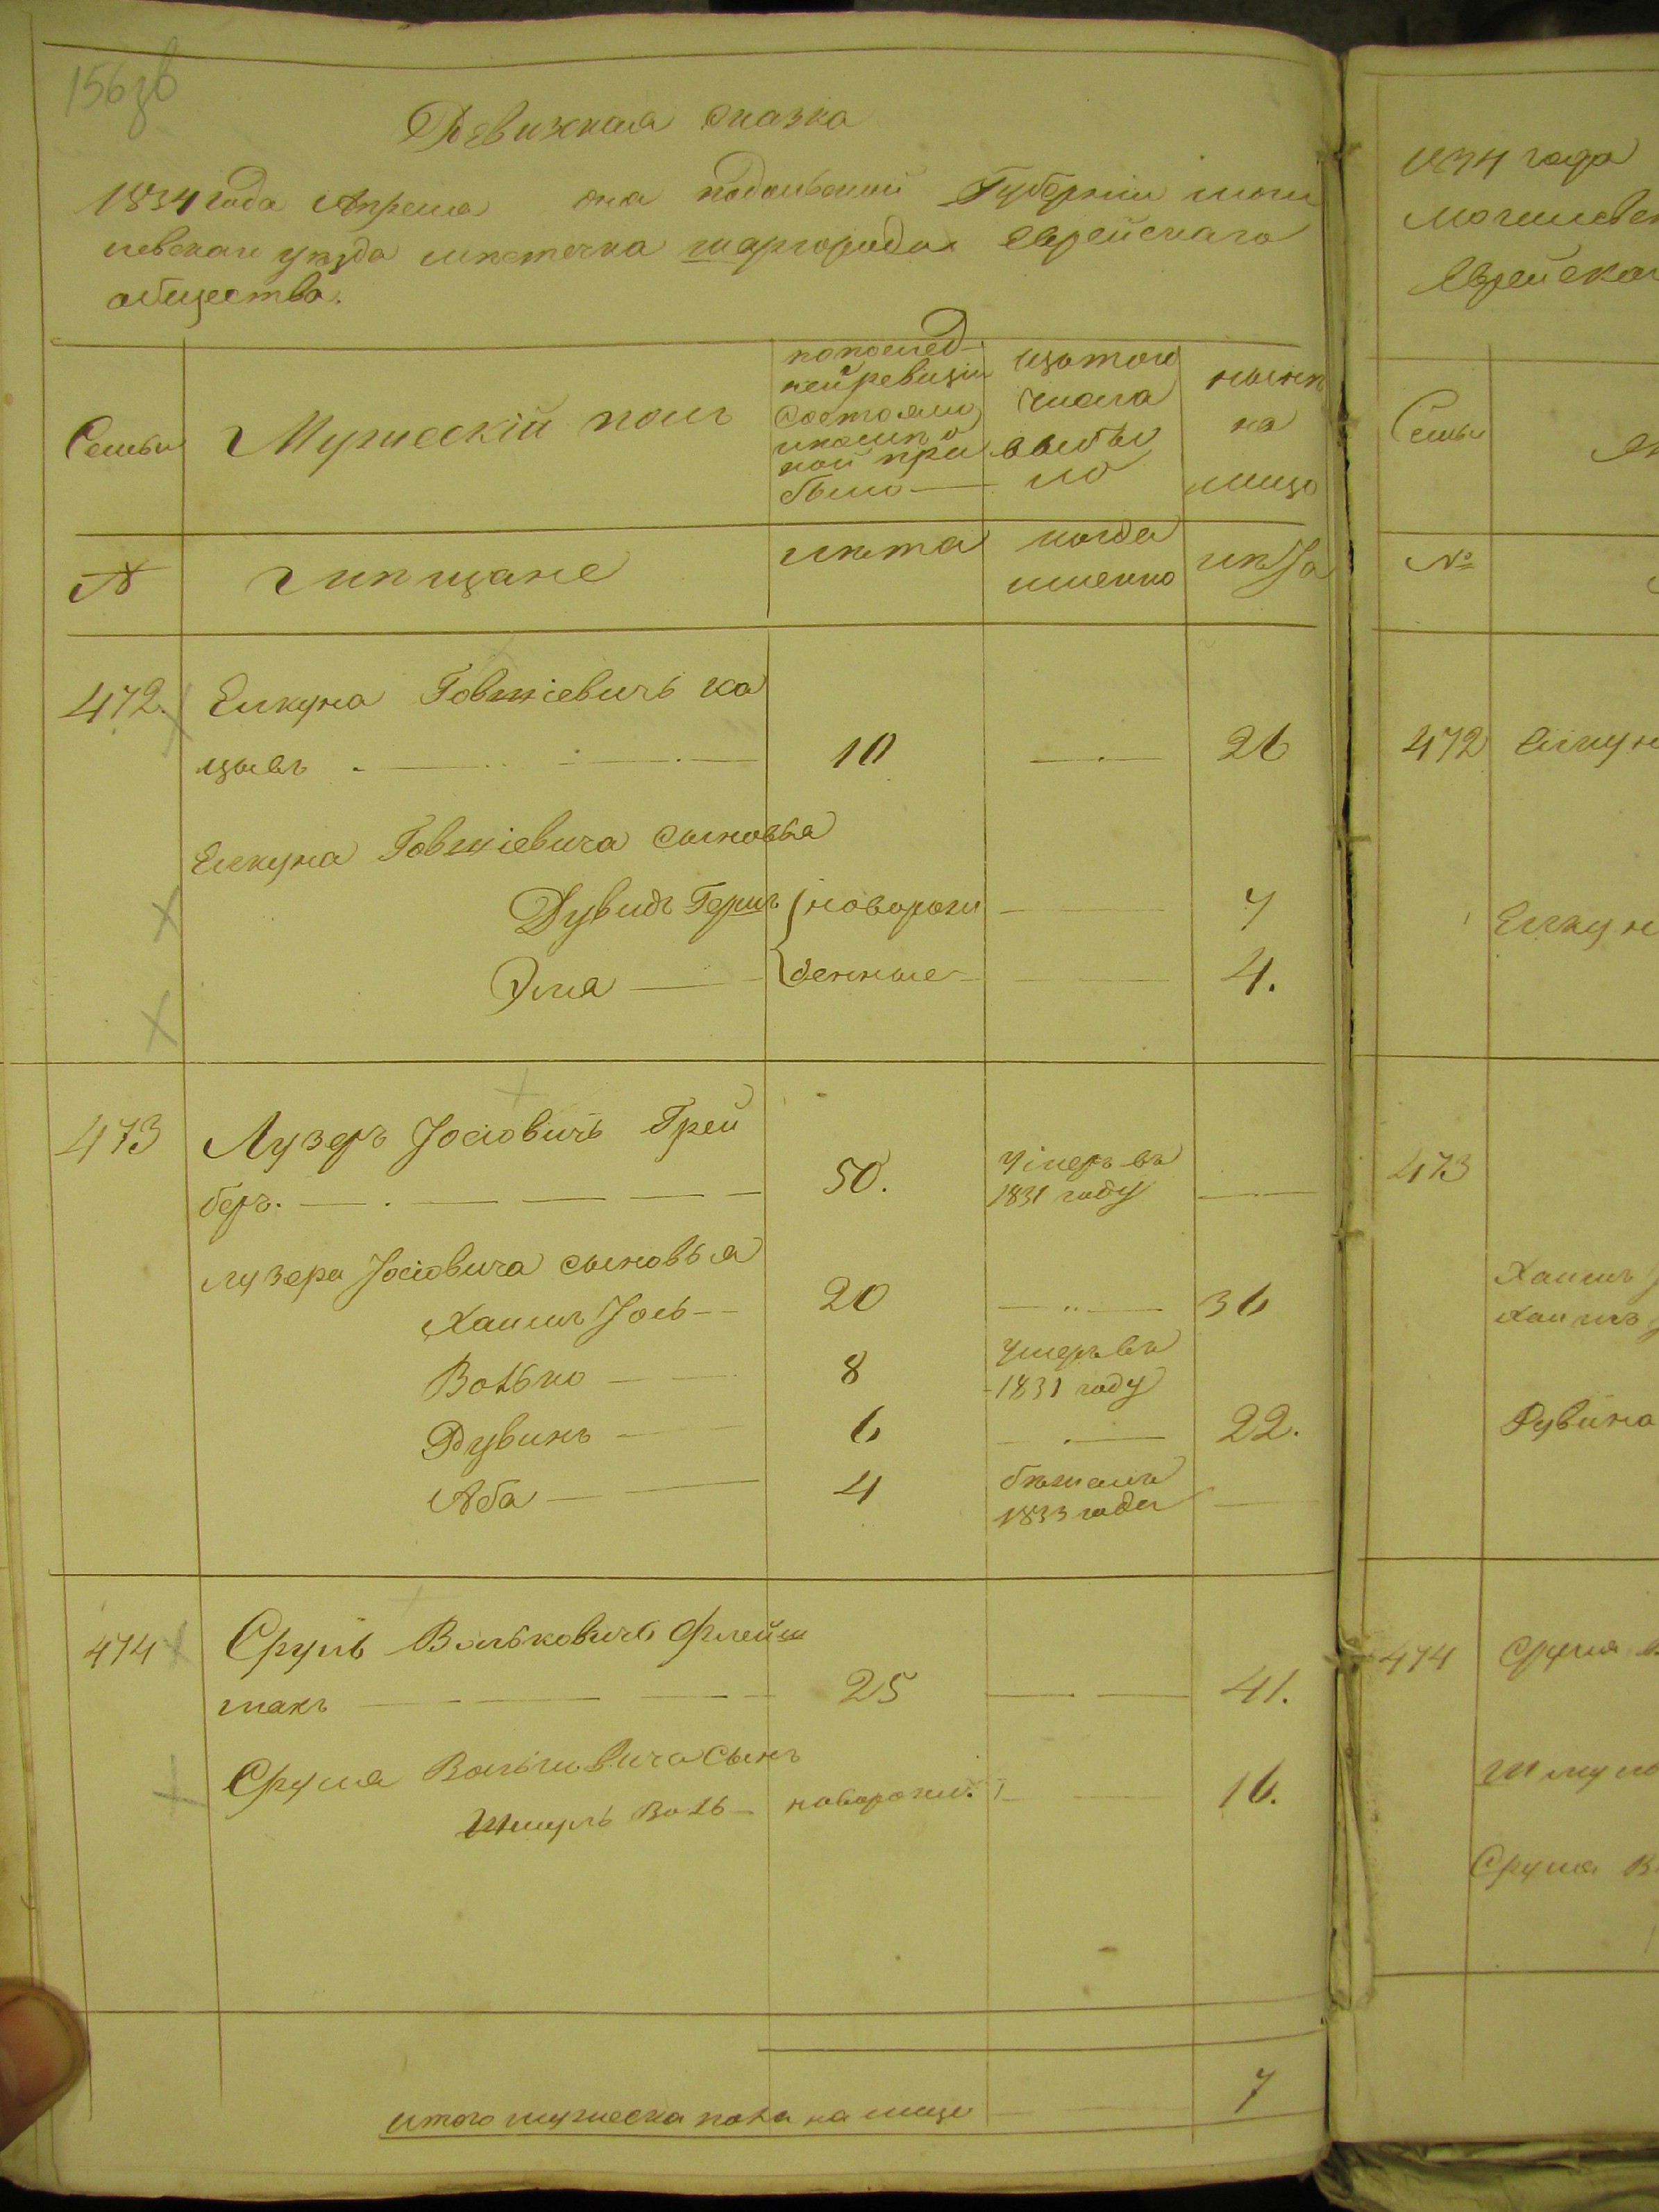 156зв
Ревизская сказка
1834 года Апреля дня подольской Губернии моги
левскаго уѣзда мѣстечка шаргорода Еврейскаго
общества.
Семьи
Мужескій полъ
по послед
ней ревизіи
состояло
и после о
ной при
было
изъ того
числа
выбы
ло
нынѣ
на
лицо
№
мѣщане
лѣта
когда
именно
лѣта
472. Елкуна Говшіевичъ ка
цывъ 10 26
Елкуна Говшіевича сыновья
Дувидъ Гершъ новорож 7
Эля денные 4.
473 Лузеръ Іосіовичъ Грей
беръ. 50. умеръ въ
1831 году
лузера Іосіовича сыновья
Хаимъ Іось 20 36
Волько 8 умеръ въ
1831 году
Рувинъ 6 22.
Аба 4 бѣжалъ
1833 года
474 Сруль Вольковичъ Флейш
макъ 25 41.
Сруля Вольковича сынъ
Шмуль Воль новорож. 16.
итого мужеска пола на лицо 7
1834 года
могилевск
Еврейскаг
Семьи
№
472 Елкун
Елкун
473
Хаимъ
Хаимъ
Рувина
474 Сруля
Шмуль
Сруля В